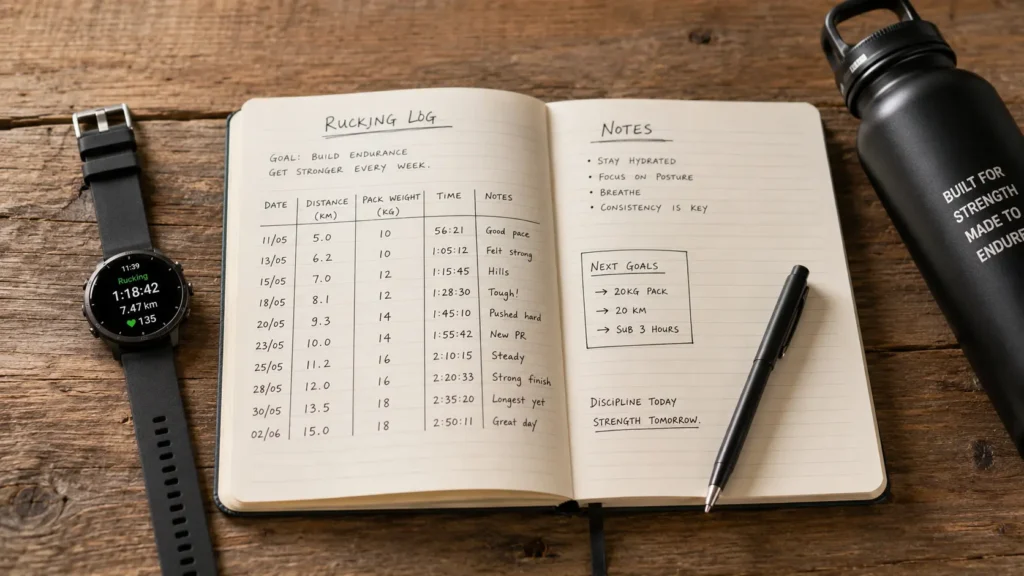 11:39
Rucking
1:18:42
7.47 km
135
RUCKING LOG
GOAL: BUILD ENDURANCE
GET STRONGER EVERY WEEK.
DATE DISTANCE (KM) PACK WEIGHT (KG) TIME NOTES
11/05 5.0 10 56:21 Good pace
13/05 6.2 10 1:05:12 Felt strong
15/05 7.0 12 1:15:45 Hills
18/05 8.1 12 1:28:30 Tough!
20/05 9.3 14 1:45:10 Pushed hard
23/05 10.0 14 1:55:42 New PR
25/05 11.2 16 2:10:15 Steady
28/05 12.0 16 2:20:33 Strong finish
30/05 13.5 18 2:35:20 Longest yet
02/06 15.0 18 2:50:11 Great day
NOTES
• STAY HYDRATED
• FOCUS ON POSTURE
• BREATHE
• CONSISTENCY IS KEY
NEXT GOALS
→ 20KG PACK
→ 20 KM
→ SUB 3 HOURS
DISCIPLINE TODAY
STRENGTH TOMORROW.
BUILT FOR
STRENGTH
MADE TO
ENDURE